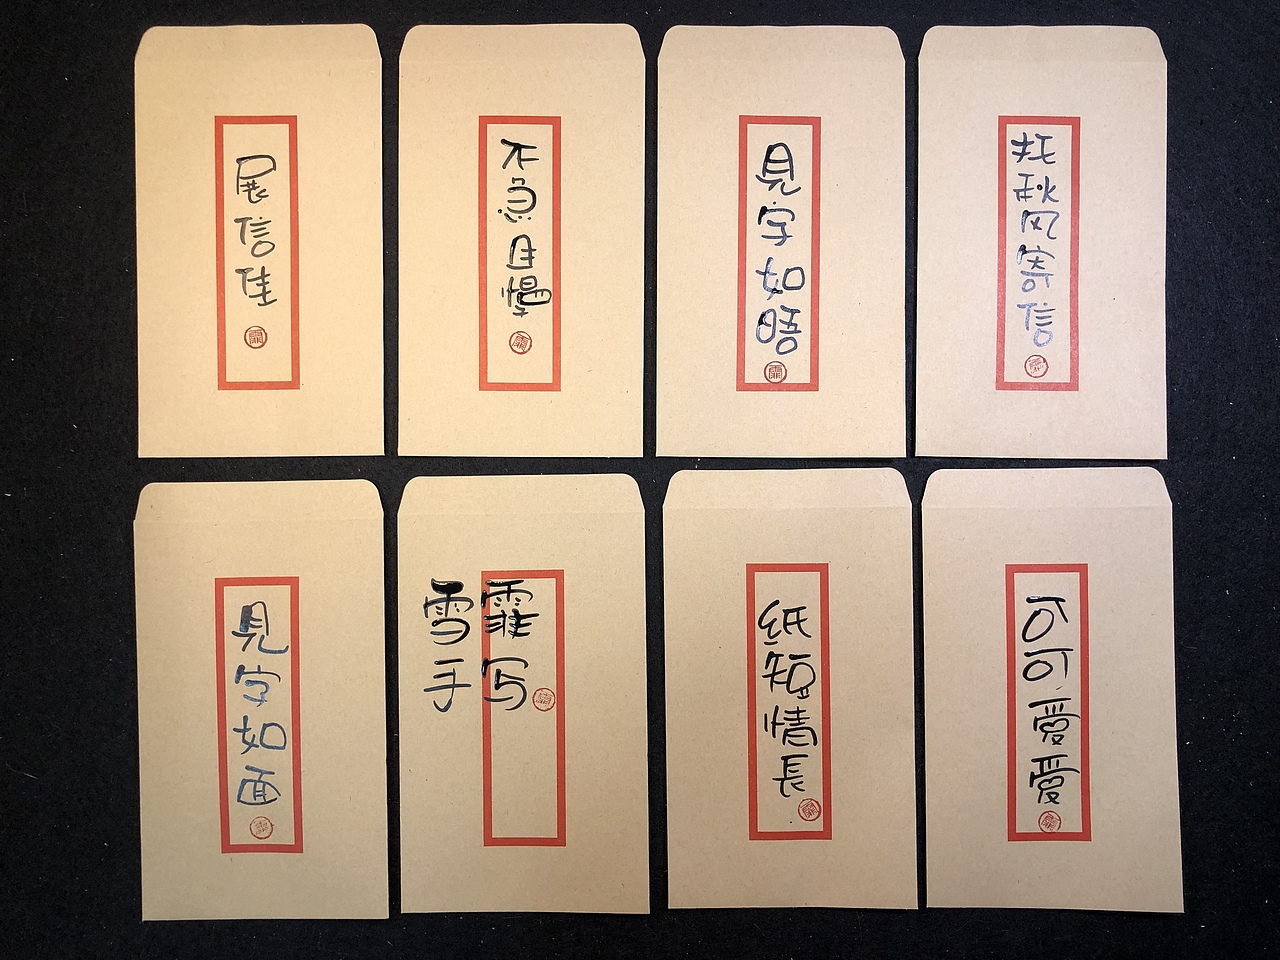 展信佳
不急且慢
見字如晤
托秋风寄信
見字如面
雪霏
手写
纸短情長
可可愛愛